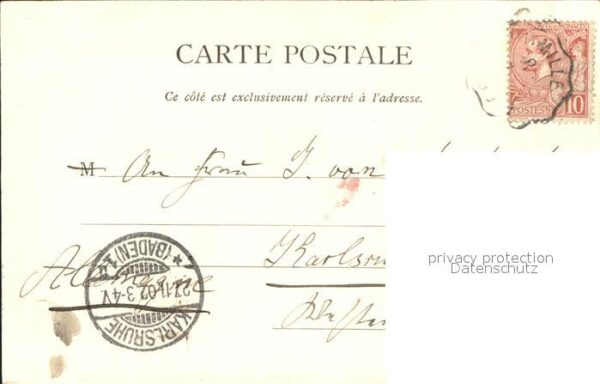 CARTE POSTALE
Ce côté est exclusivement réservé à l'adresse.
10
POSTES
M An Frau J. von
Karlsru
Allemagne
KARLSRUHE
27.11.02.3-4V
* (BADEN) 1
privacy protection
Datenschutz